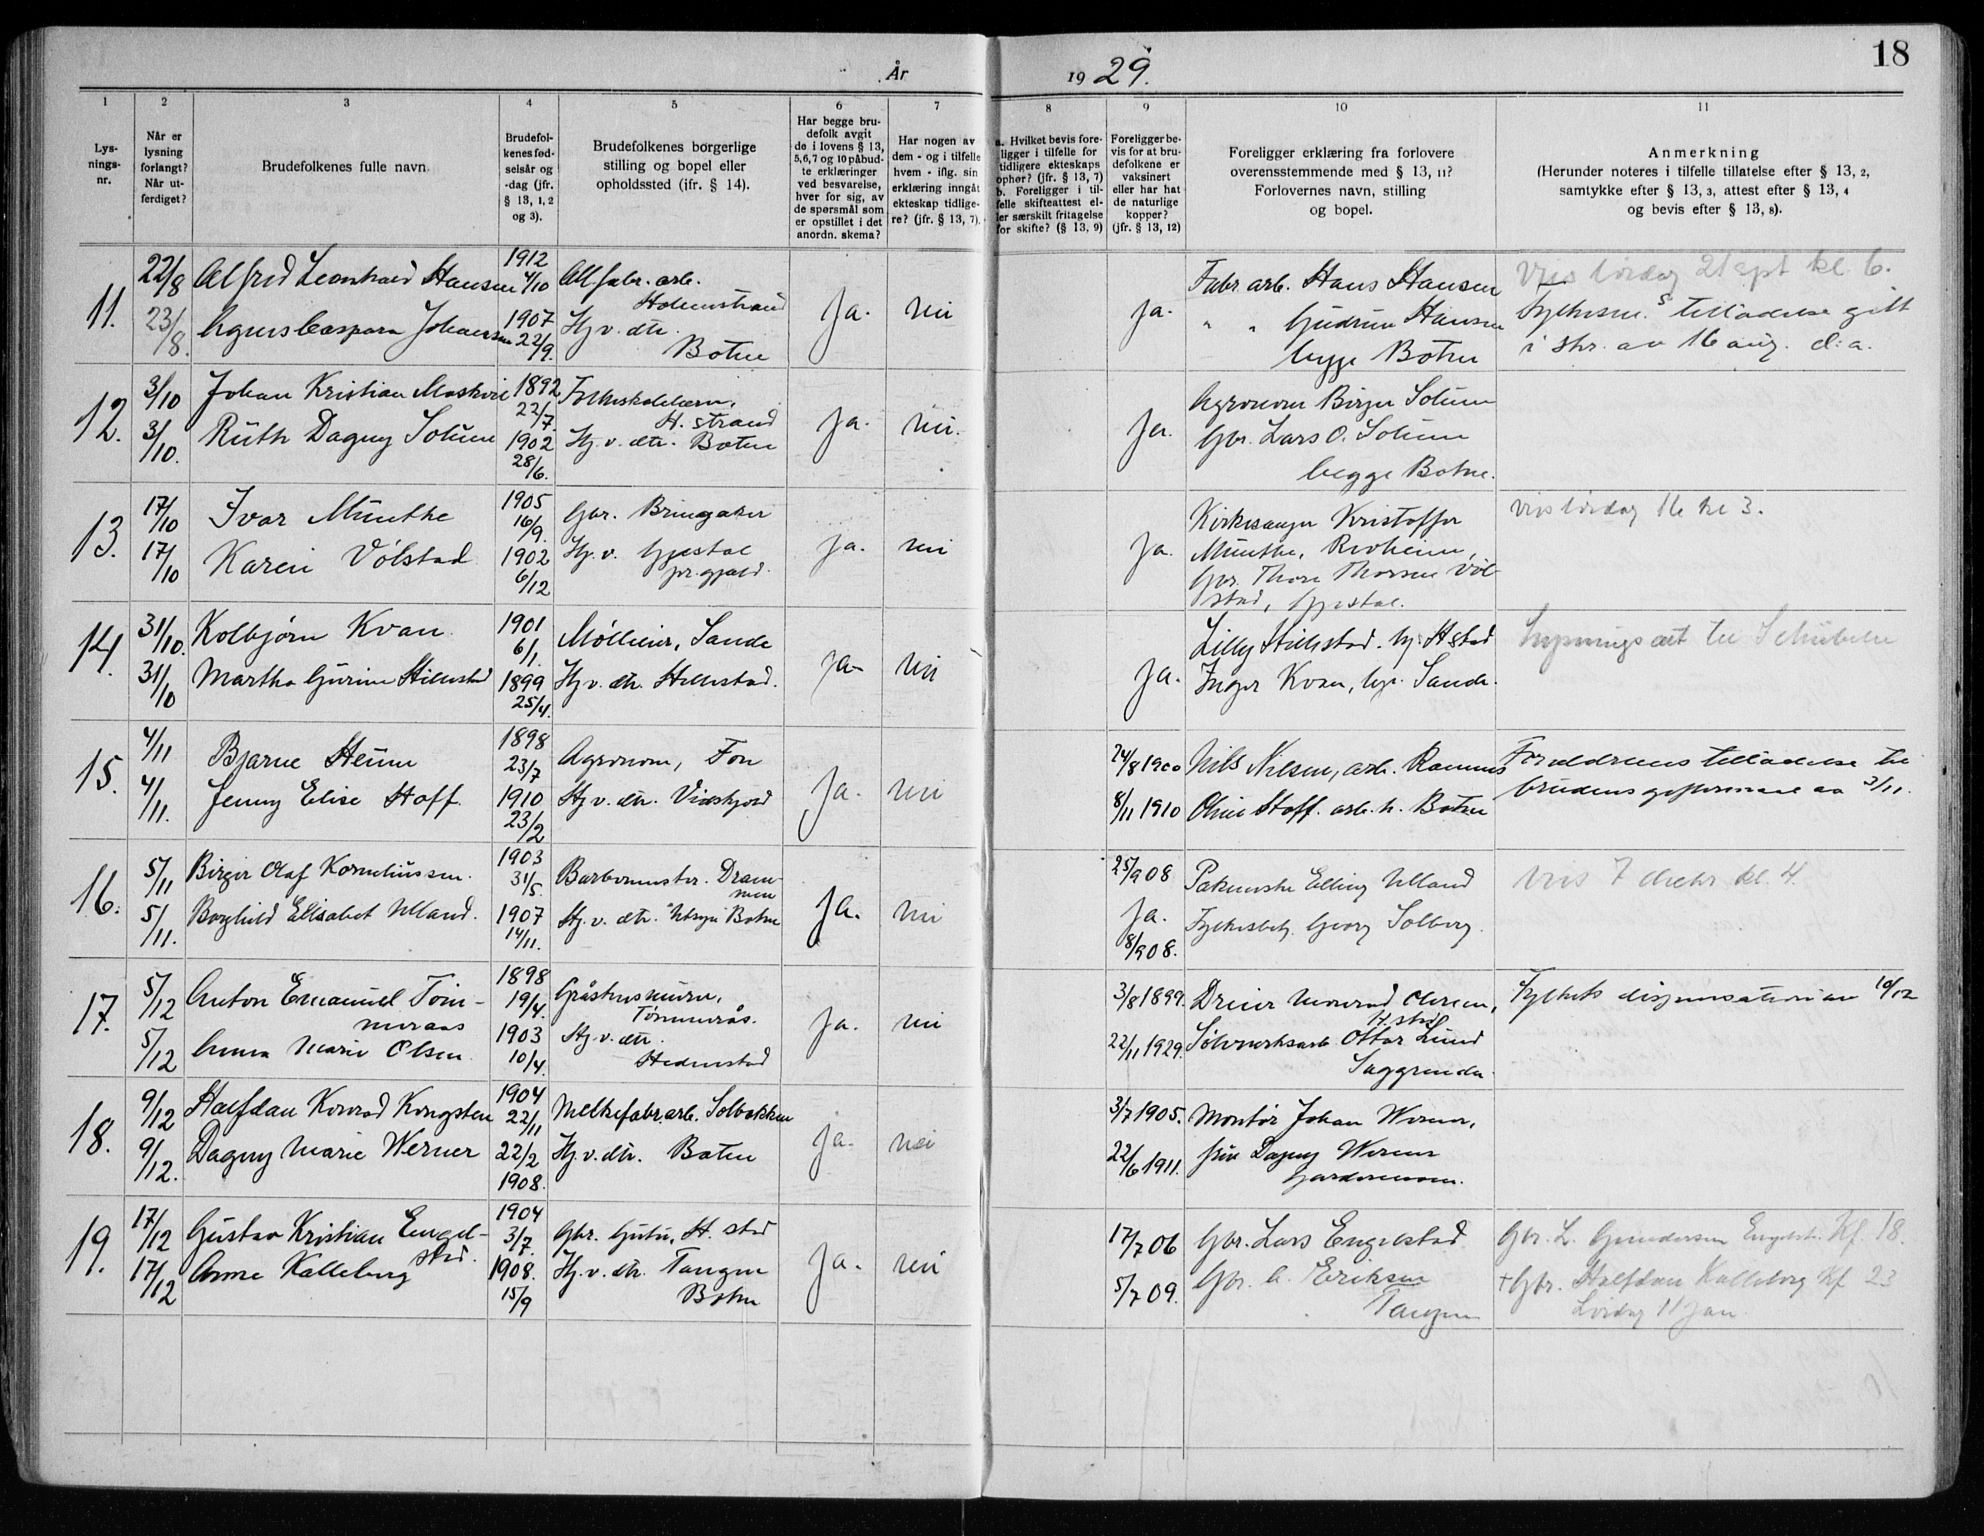 18
År 1929.
1
2
3
4
5
6
7
8
9
10
11
Lys-
nings-
nr.
Når er
lysning
forlangt?
Når ut-
ferdiget?
Brudefolkenes fulle navn.
Brudefol-
kenes fød-
selsår og
-dag (jfr.
§ 13, 1, 2
og 3).
Brudefolkenes borgerlige
stilling og bopel eller
opholdssted (jfr. § 14).
Har begge bru-
defolk avgit
de i lovens § 13,
5,6,7 og 10 påbud-
te erklæringer
ved besvarelse,
hver for sig, av
de spørsmål som
er opstillet i det
anordn. skema?
Har nogen av
dem - og i tilfelle
hvem - iflg. sin
erklæring inngåt
ekteskap tidlige-
re? (jfr. § 13, 7).
a. Hvilket bevis fore-
ligger i tilfelle for
tidligere ekteskaps
ophør? (jfr. § 13, 7)
b. Foreligger i til-
felle skifteattest el-
ler særskilt fritagelse
for skifte? (§ 13, 9)
Foreligger be-
vis for at bru-
defolkene er
vaksinert
eller har hat
de naturlige
kopper?
(jfr. § 13, 12)
Foreligger erklæring fra forlovere
overensstemmende med § 13, 11?
Forlovernes navn, stilling
og bopel.
Anmerkning
(Herunder noteres i tilfelle tillatelse efter § 13, 2,
samtykke efter § 13, 3, attest efter § 13, 4
og bevis efter § 13, 8).
11.
22/8 Alfred Leonhard Hansen 1912 4/10 Allfabr. arb. Holmstrand
23/8. Agnes Caspara Johansen 1907 22/9. Hj. v. dtr. Botne
Ja. nei ja.
Fabr. arb. Hans Hansen
" " Gudrun Hansen
begge Botne
Vies lørdag 21 sept kl. 6.
Fylkesm.s tilladelse gitt
i skr. av 16 aug. d. a.
12.
3/10 Johan Kristian Moskvil 1892 22/7. Folkeskolelærer, H. strand
3/10. Ruth Dagny Solum 1902 28/6. Hj. v. dtr. Botne
Ja. nei. Ja.
Agronom Birger Solum
Gbr. Lars O. Solum
begge Botne.
13.
17/10 Ivar Munthe 1905 16/9. Gbr. Bringaker
17/10 Karen Vølstad 1902 6/12 Hj. v. Gjestal pr.gjeld.
Ja. nei Ja.
Kirkesanger Kristoffer
Munthe,
Gbr. Thore Thorsen Vøl-
stad, Gjestal.
Vies lørdag 16 kl 3.
14.
31/10. Kolbjørn Kvan 1901 6/1. Mølleier, Sande
31/10 Martha Gurine Hillestad 1899 25/4. Hj. v. dtr. Hillestad.
Ja- nei Ja.
Lilly Hillestad. hj. Hstad
Inger Kvan, hj. Sande.
Lysnings att til
15.
4/11 Bjarne Heum 1898 23/7 Agronom, Fon
4/11. Jenny Elise Hoff 1910 23/2 Hj. v. dtr. Vidskjold
Ja. nei
24/8 1900 Nils Nilsen, arb. Ramnes
8/11 1910 Oline Hoff. arb. h. Botne
Foreldrenes tilladelse til
brudens giftermaal av 3/11.
16.
5/11 Birger Olaf Korneliussen. 1903 31/5. Barbermester. Dram-
men
5/11. Borghild Elisabet Ulland. 1907 14/11. Hj. v. dtr. Botne
Ja. nei
25/9 08
Ja.
8/9 08.
Elling Ulland
Georg Solberg.
Vies 7 decbr kl. 4.
17.
5/12 Anton Emanuel Tøm-
meraas 1898 19/4. Tømmerås.
5/12 Anna Marie Olsen 1903 10/4. Hj. v. dtr. Hedenstad
Ja. nei
3/8 1899. Dreier Monrad Olsen,
H. stad
22/11 1929. Sølvverksarb. Ottar Lund
Saggrenda.
Fylkets dispensation av 10/12
18.
9/12 Halfdan Konrad Kongsten 1904 22/11 Melkefabr. arb. Solbakken
9/12. Dagny Marie Werner 22/2 1908. Hj. v. dtr. Botne
Ja. nei
3/7 1905. Montør Johan Werner,
22/6 1911. fru Dagny Werner
Gardermoen.
19.
17/12 Gustav Kristian Engel-
stad. 1904 3/7. Gbr. Gutu, H. stad
17/12 Anne Kalleberg 1908. 15/9 Hj. v. dtr. Tangen
Botne
Ja. nei
17/7 06 Gbr. Lars Engelstad.
5/7 09. Gbr. A. Eriksen
Tangen
Gbr. L. Gundersen Engelst. Kf. 18.
+ Gbr. Halfdan Kalleberg Kf 23
Lørdag 11 jan.